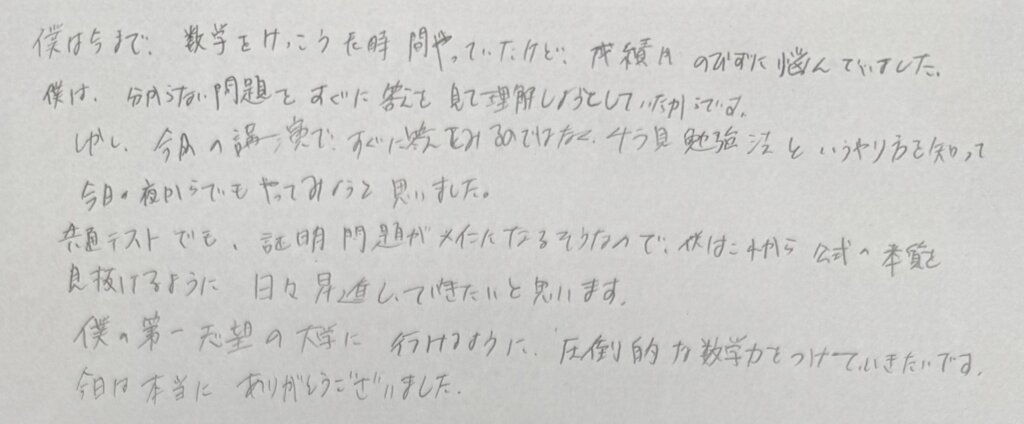 僕は今まで、数学をけっこう長時間やっていたけど、成績は のびずに悩んでいました。
僕は、分からない問題を すぐに答えを見て理解しようとしていたからです。
しかし、今回の講演で、すぐに答えをみるのではなく、4つ見勉強法というやり方を知って
今日の夜からでも やってみようと思いました。
共通テストでも、証明問題がメインになるそうなので、僕はこれから 公式の本質を
見抜けるように 日々昇進していきたいと思います。
僕の第一志望の大学に 行けるように、圧倒的な数学力をつけていきたいです。
今日は本当に ありがとうございました。